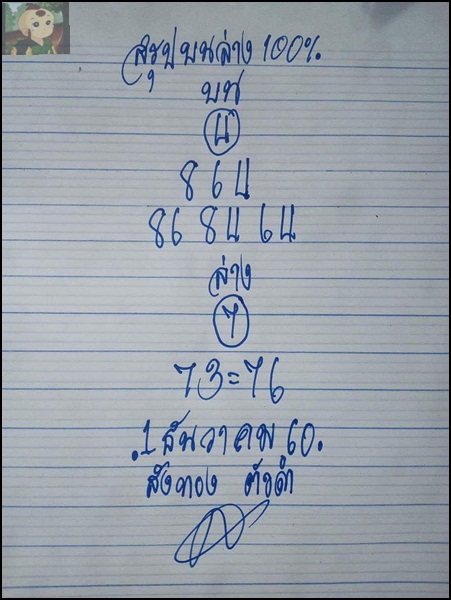 สรุปบนล่าง 100%
บน
4
8 6 4
86 84 64
ล่าง
7
73=76
.1 ธันวาคม 60.
สังทอง ตัวดำ